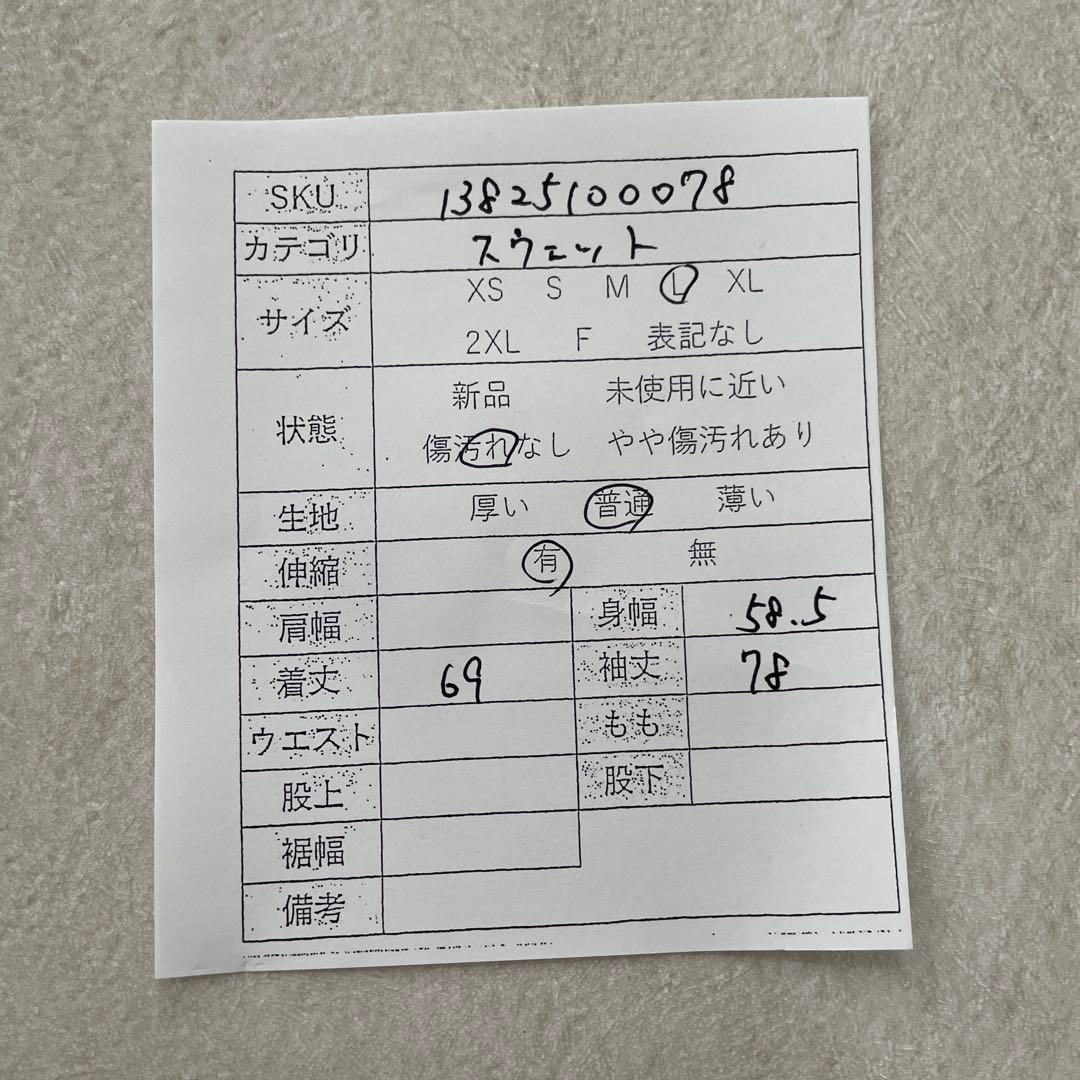 SKU 13825100078
カテゴリ スウェット
サイズ XS S M L XL
2XL F 表記なし
状態 新品 未使用に近い
傷汚れなし やや傷汚れあり
生地 厚い 普通 薄い
伸縮 有 無
肩幅 身幅 58.5
着丈 69 袖丈 78
ウエスト もも
股上 股下
裾幅
備考